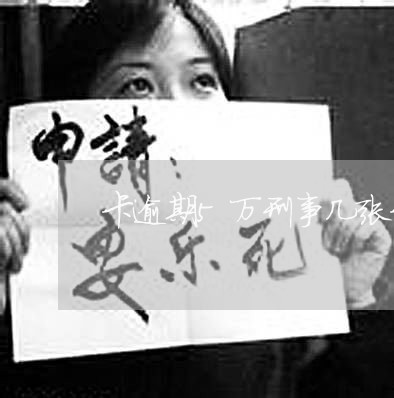 申請：
卡逾期5万刑事几张
安乐死